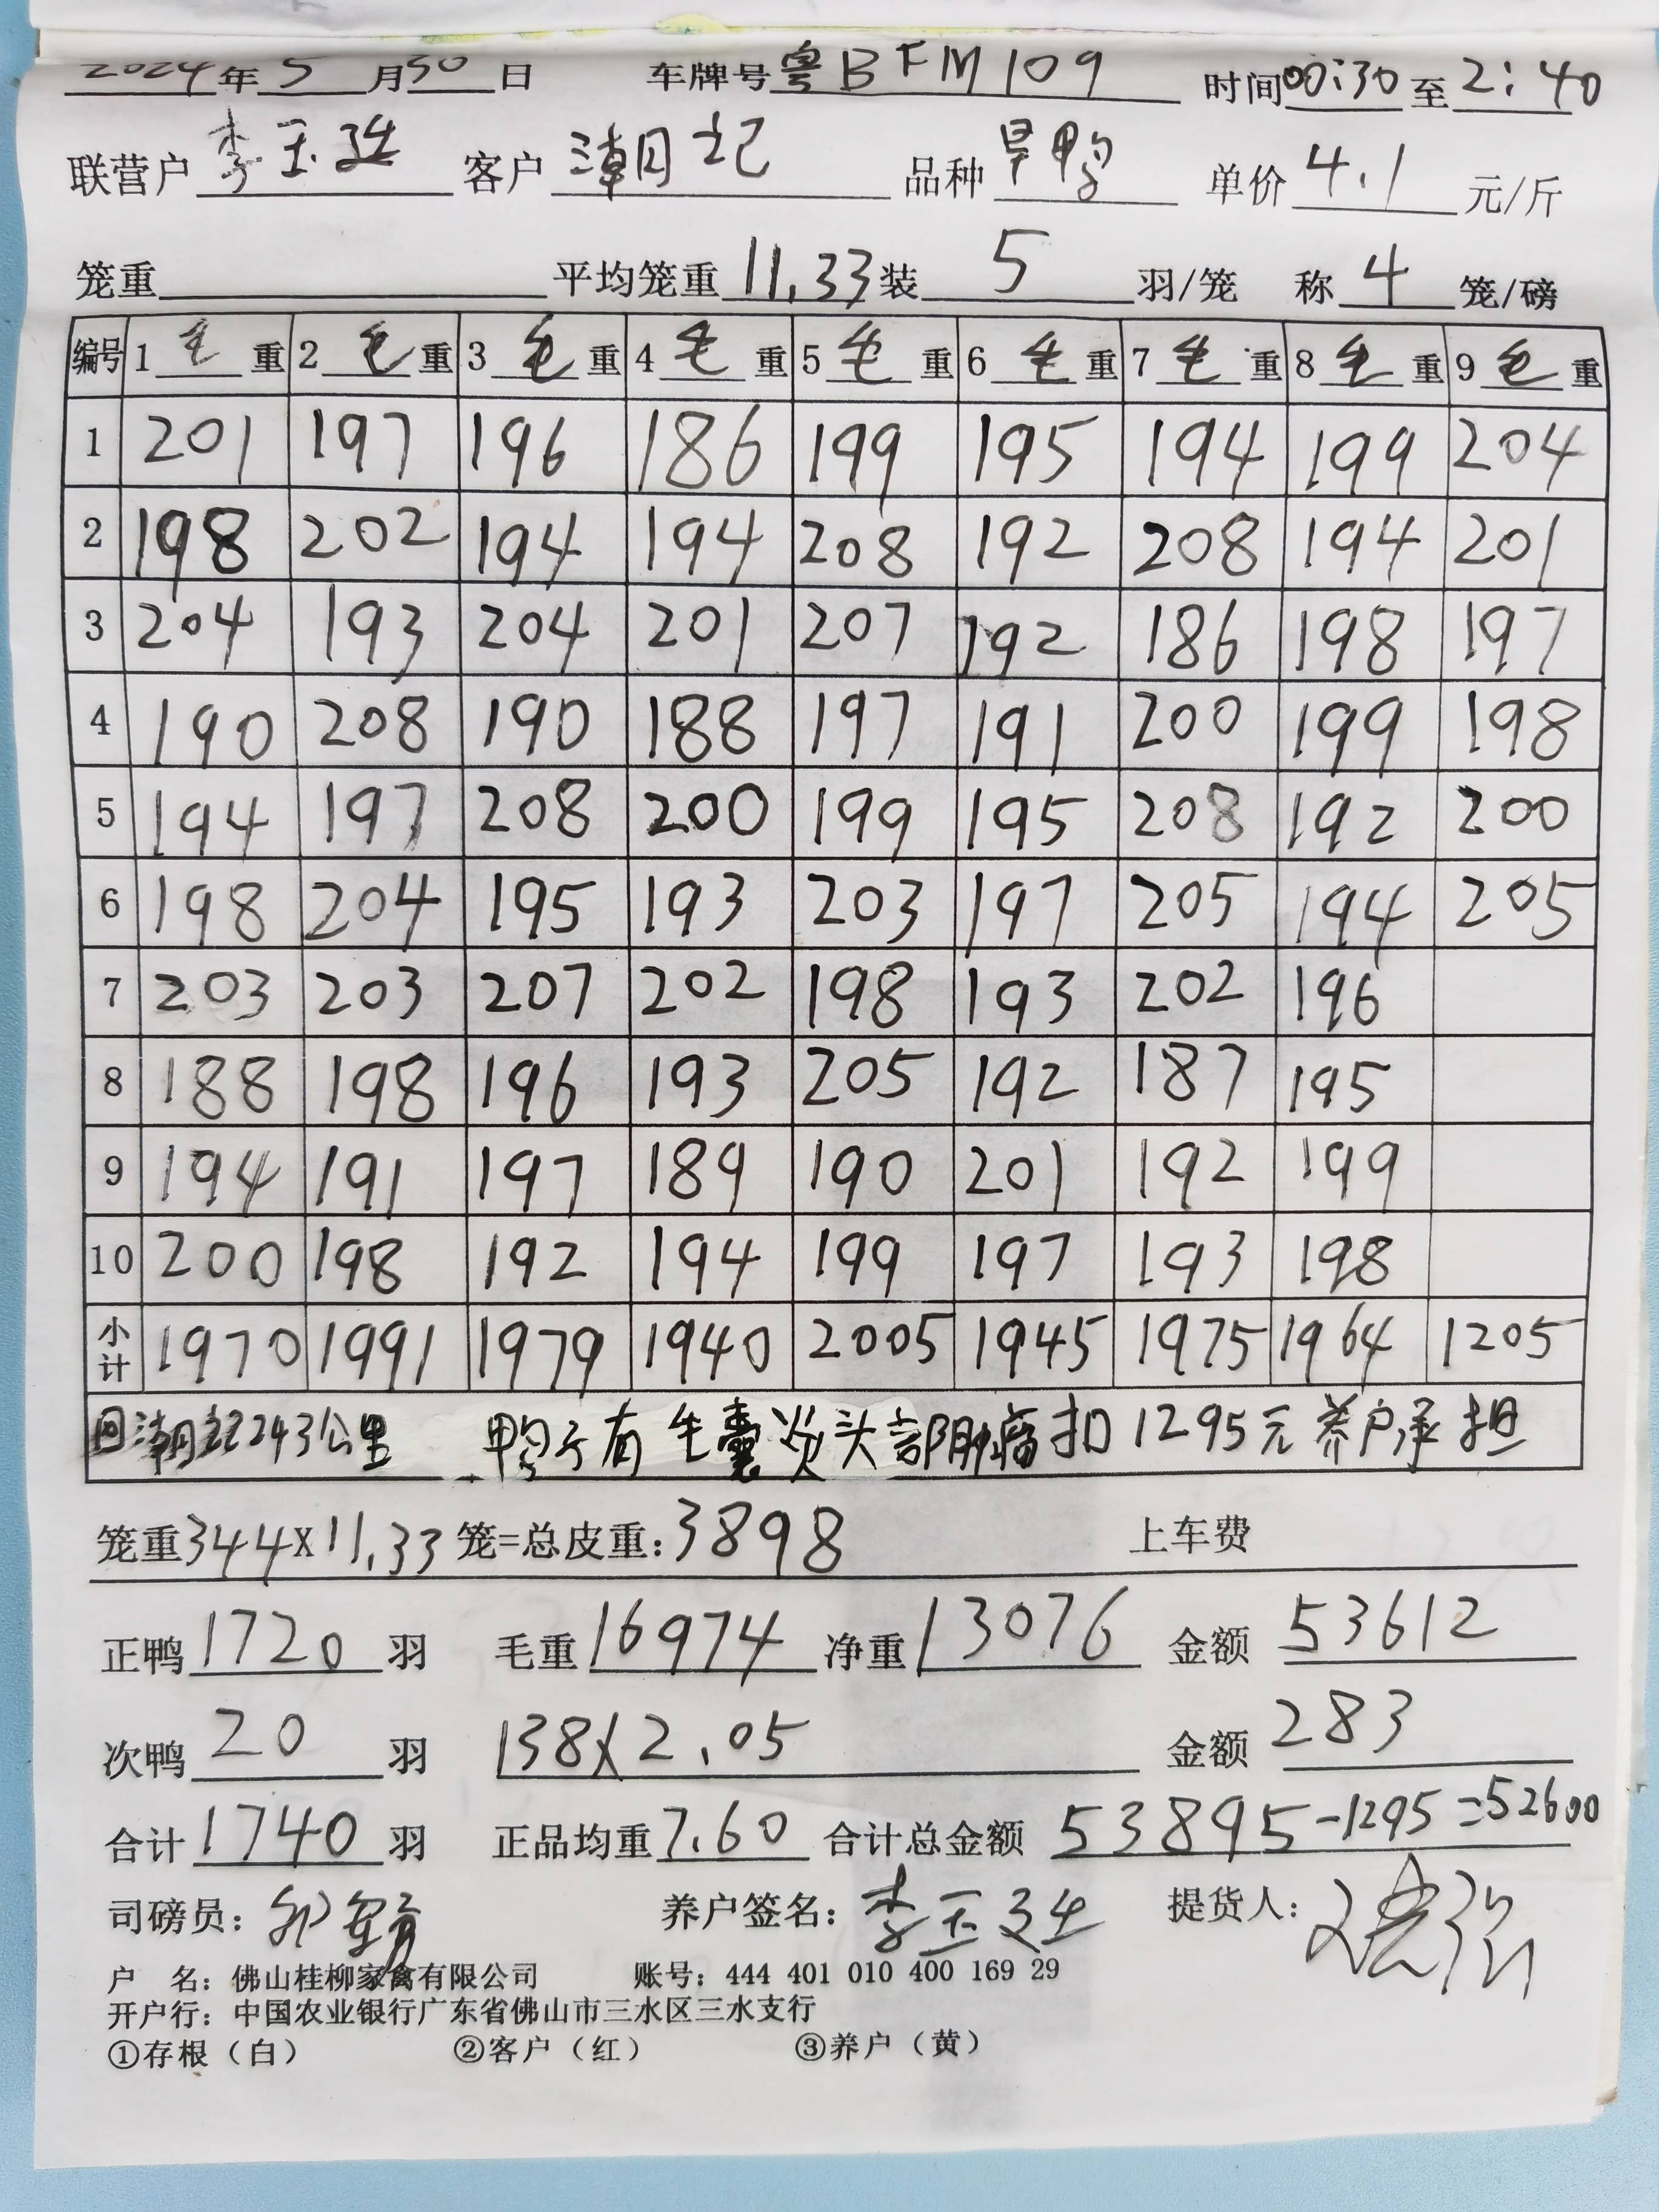 2024年5月30日 车牌号粤BFM109 时间00:30至2:40
联营户李玉连 客户潮记 品种旱鸭 单价4.1元/斤
笼重 平均笼重11.33装5羽/笼 称4笼/磅
编号 1毛重 2毛重 3毛重 4毛重 5毛重 6毛重 7毛重 8毛重 9毛重
1 201 197 196 186 199 195 194 199 204
2 198 202 194 194 208 192 208 194 201
3 204 193 204 201 207 192 186 198 197
4 190 208 190 188 197 191 200 199 198
5 194 197 208 200 199 195 208 192 200
6 198 204 195 193 203 197 205 194 205
7 203 203 207 202 198 193 202 196
8 188 198 196 193 205 192 187 195
9 194 191 197 189 190 201 192 199
10 200 198 192 194 199 197 193 198
小计 1970 1991 1979 1940 2005 1945 1975 1964 1205
回潮记243公里 鸭子有毛囊炎头部肿瘤扣1295元养户承担
笼重344X11.33笼=总皮重:3898 上车费
正鸭1720羽 毛重16974 净重13076 金额53612
次鸭20羽 138X2.05 金额283
合计1740羽 正品均重7.60 合计总金额53895-1295=52600
司磅员: 养户签名:李玉连 提货人:
户 名:佛山桂柳家禽有限公司 账号:444 401 010 400 169 29
开户行:中国农业银行广东省佛山市三水区三水支行
①存根(白) ②客户(红) ③养户(黄)